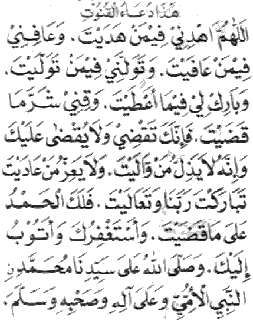 هٰذَا دُعَاءُ الْقُنُوْتِ
اَللّٰهُمَّ اهْدِنِيْ فِيْمَنْ هَدَيْتَ. وَعَافِنِيْ
فِيْمَنْ عَافَيْتَ. وَتَوَلَّنِيْ فِيْمَنْ تَوَلَّيْتَ.
وَبَارِكْ لِيْ فِيْمَا اَعْطَيْتَ. وَقِنِيْ شَرَّ مَا
قَضَيْتَ. فَاِنَّكَ تَقْضِيْ وَلَا يُقْضٰى عَلَيْكَ
وَاِنَّهُ لَا يَذِلُّ مَنْ وَالَيْتَ. وَلَا يَعِزُّ مَنْ عَادَيْتَ
تَبَارَكْتَ رَبَّنَا وَتَعَالَيْتَ. فَلَكَ الْحَمْدُ
عَلٰى مَا قَضَيْتَ. وَاَسْتَغْفِرُكَ وَاَتُوْبُ
اِلَيْكَ. وَصَلَّى اللهُ عَلٰى سَيِّدِنَا مُحَمَّدِنِ
النَّبِيِّ الْاُمِّيِّ وَعَلٰى اٰلِهِ وَصَحْبِهِ وَسَلَّمَ.